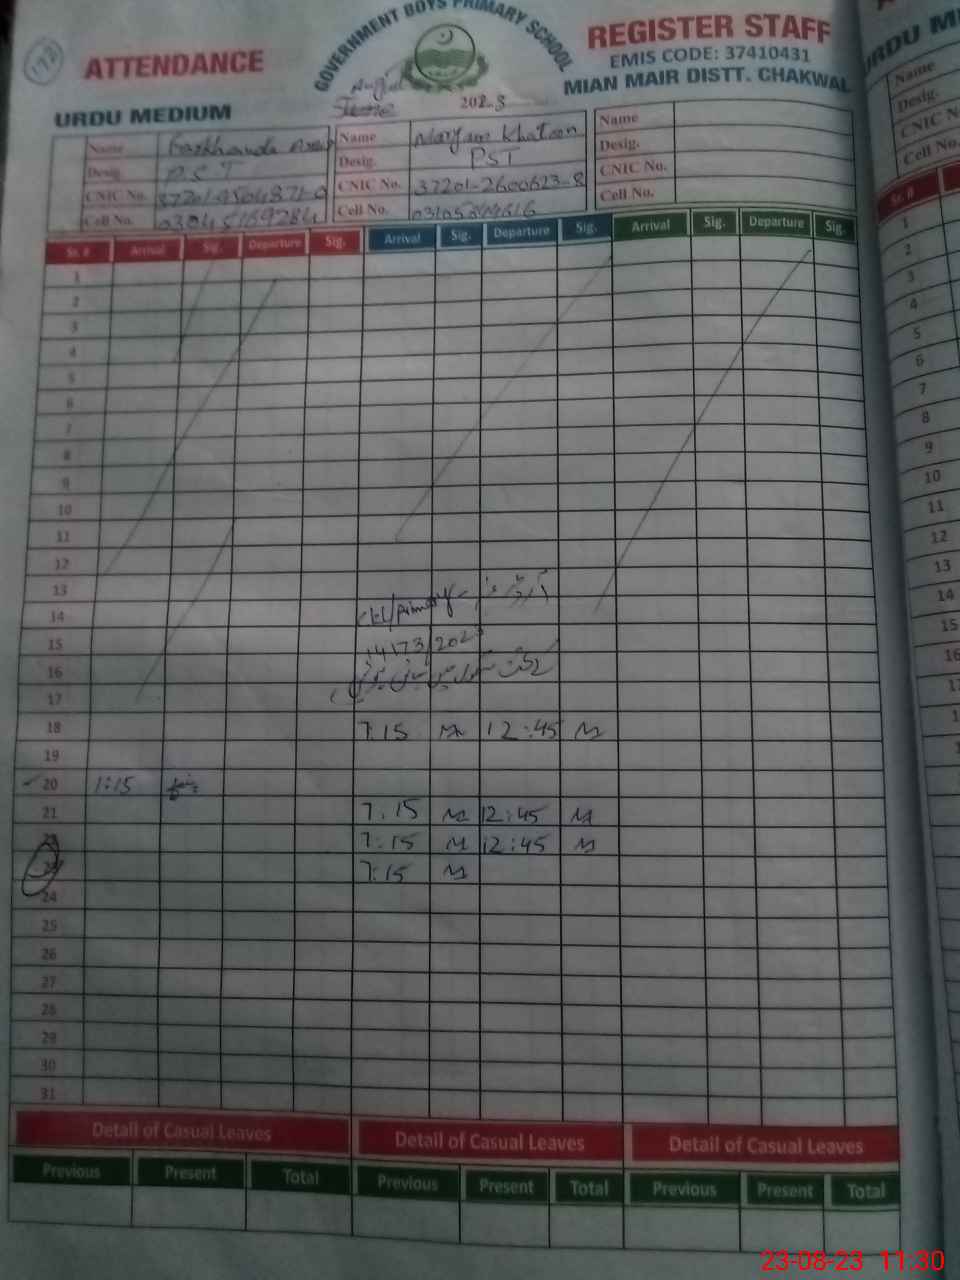 192
GOVERNMENT BOYS PRIMARY SCHOOL
ATTENDANCE
REGISTER STAFF
EMIS CODE: 37410431
MIAN MAIR DISTT. CHAKWAL
URDU MEDIUM
August
2023
Name Farkhanda
Desig. P.S.T
CNIC No.
Cell No.
Name Maryam Khatoon
Desig. PST
CNIC No. 37201-2600623-8
Cell No.
Name
Desig.
CNIC No.
Cell No.
Sr. # Arrival Sig. Departure Sig. Arrival Sig. Departure Sig. Arrival Sig. Departure Sig.
1
2
3
4
5
6
7
8
9
10
11
12
13
14
15 14173/2023
16
17
18 7:15 M 12:45 M
19
20 1:15
21 7:15 M 12:45 M
22 7:15 M 12:45 M
23 7:15 M
24
25
26
27
28
29
30
31
Detail of Casual Leaves Detail of Casual Leaves Detail of Casual Leaves
Previous Present Total Previous Present Total Previous Present Total
URDU
Name
Desig.
CNIC N
Cell No.
Sr. #
1
2
3
4
5
6
7
8
9
10
11
12
13
14
15
16
23-08-23 11:30